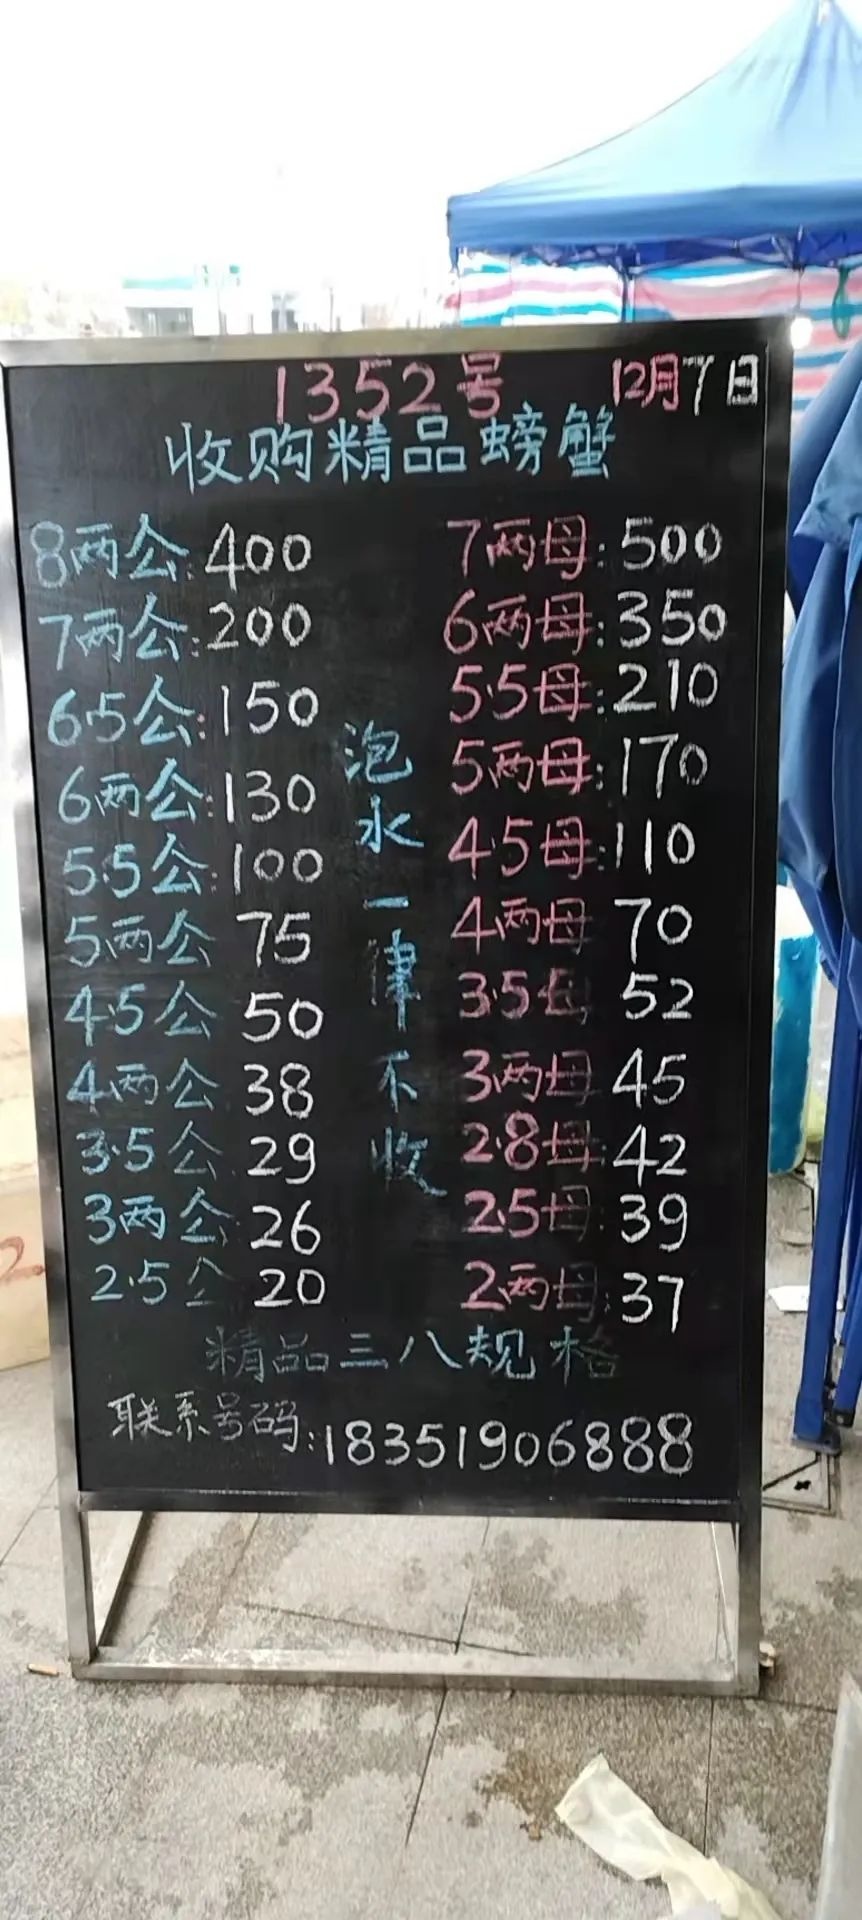 1352号 12月7日
收购精品螃蟹
8两公:400
7两公:200
6.5公:150
6两公:130
5.5公:100
5两公 75
4.5公 50
4两公 38
3.5公 29
3两公 26
2.5公 20
泡水一律不收
7两母:500
6两母:350
5.5母:210
5两母:170
4.5母:110
4两母 70
3.5母 52
3两母 45
2.8母 42
2.5母:39
2两母:37
精品三八规格
联系号码:18351906888